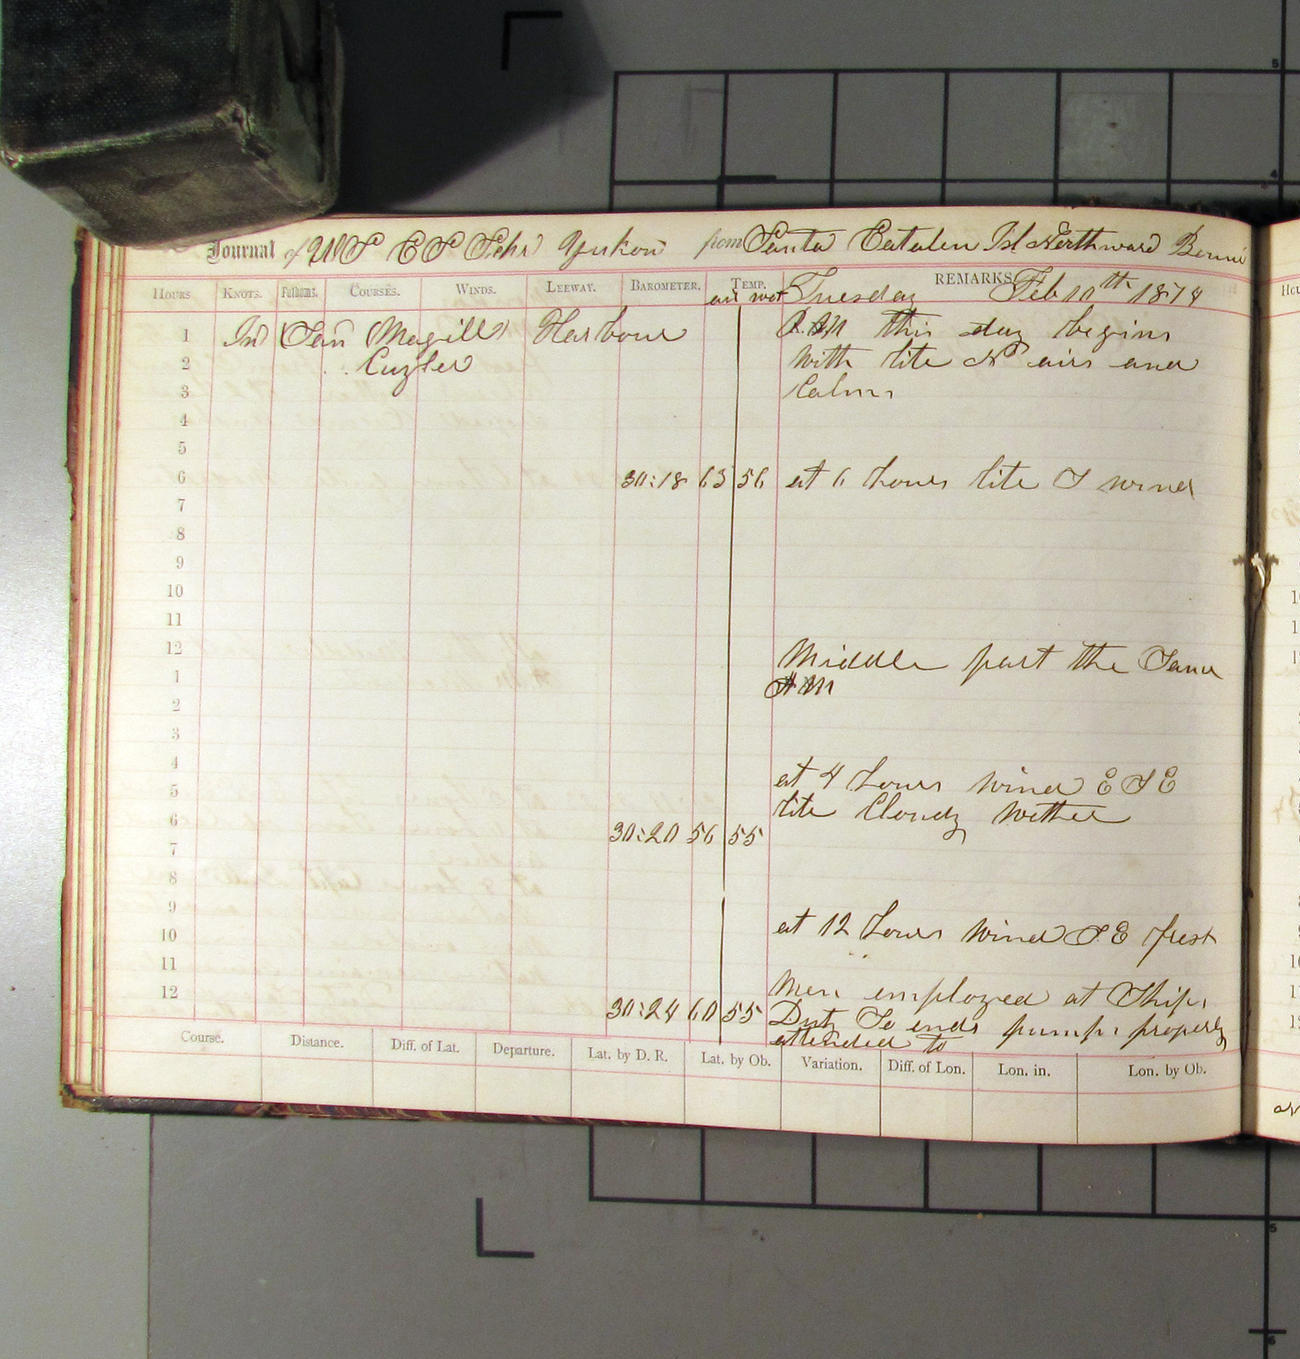 Journal of US CS Schr Yukon from Santa Catalen Isl Northward
HOURS. KNOTS. Fathoms. COURSES. WINDS. LEEWAY. BAROMETER. TEMP. REMARKS.
air wet Tuesday Feb 10th 1874
1 In San Magill Harbour P.M this day begins
2 Cuyler with lite N airs and
3 Calms
4
5
6 30:18 63 56 at 6 hours lite S wind
7
8
9
10
11
12 Middle part the Same
1 A M
2
3
4 at 4 hours wind E S E
5 lite Cloudy wether
6 30:20 56 55
7
8
9
10 at 12 hours wind S.E fresh
11
12 30:24 60 55 Men employed at Ships
Duty So ends pumps properly
attended to
Course. Distance. Diff. of Lat. Departure. Lat. by D. R. Lat. by Ob. Variation. Diff. of Lon. Lon. in. Lon. by Ob.
5
4
5
6